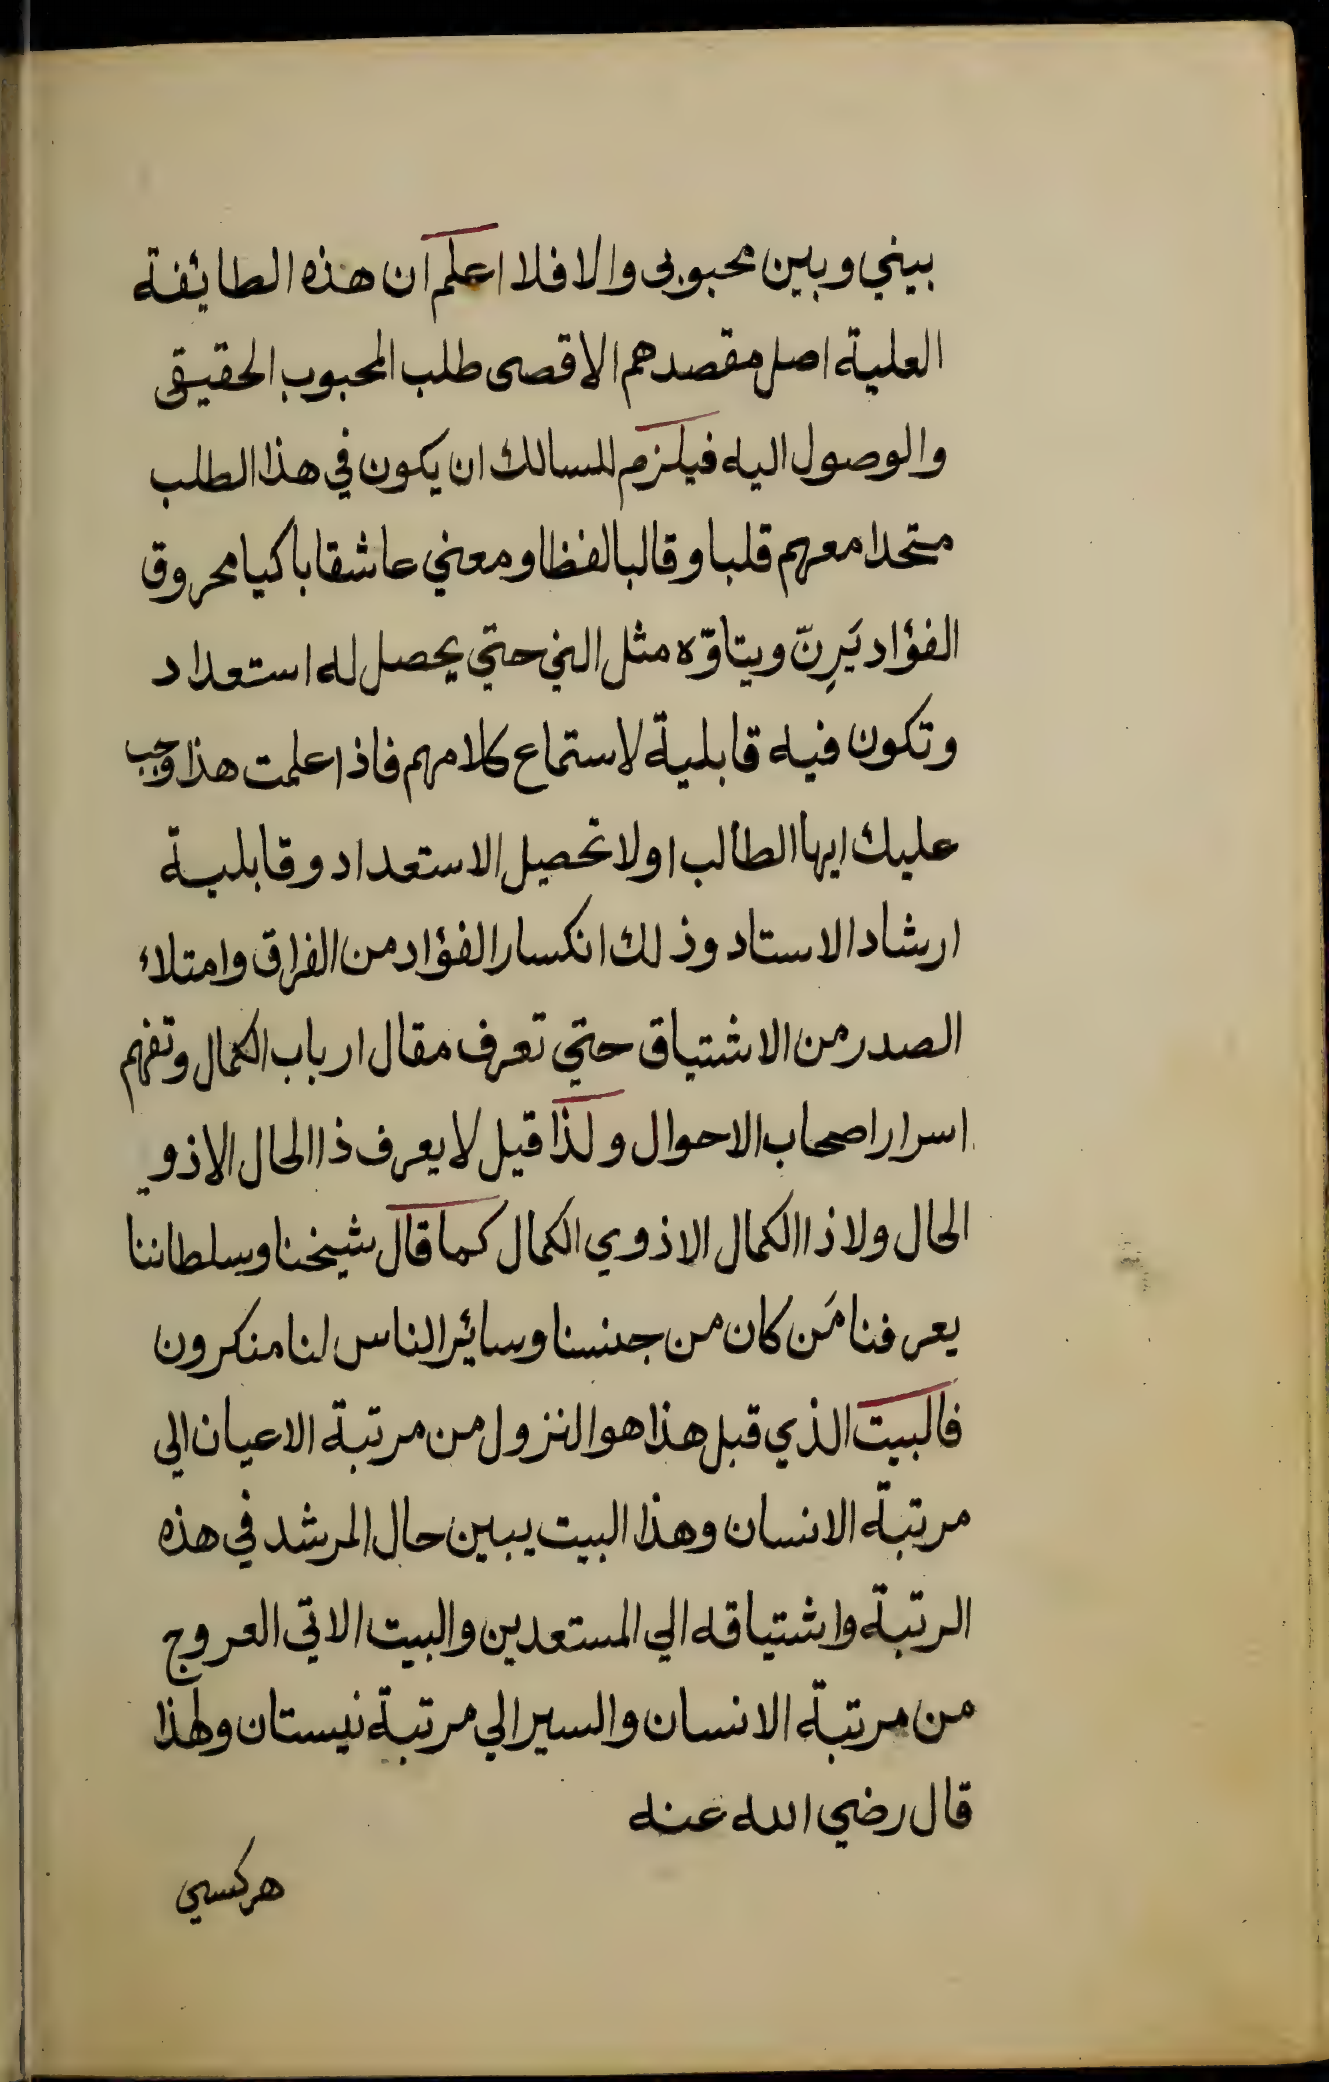 بيني وبين محبوبى والا فلا اعلم ان هذه الطائفة
العلية اصل مقصدهم الاقصى طلب المحبوب الحقيقى
والوصول اليه فيلزم للسالك ان يكون في هذا الطلب
متحدا معهم قلبا وقالبا لفظا ومعني عاشقا باكيا محروق
الفؤاد يَرِنّ ويتاوّه مثل الني حتي يحصل له استعداد
وتكون فيه قابلية لاستماع كلامهم فاذا علمت هذا وجب
عليك ايها الطالب اولا تحصيل الاستعداد وقابلية
ارشاد الاستاد وذلك انكسار الفؤاد من الفراق وامتلاء
الصدر من الاشتياق حتي تعرف مقال ارباب الكمال وتفهم
اسرار اصحاب الاحوال ولذا قيل لا يعرف ذا الحال الا ذوي
الحال ولا ذا الكمال الا ذوي الكمال كما قال شيخنا وسلطاننا
يعرفنا مَن كان من جنسنا وسائر الناس لنا منكرون
فالبيت الذي قبل هذا هو النزول من مرتبة الاعيان الي
مرتبة الانسان وهذا البيت يبين حال المرشد في هذه
الرتبة واشتياقه الي المستعدين والبيت الاتى العروج
من مرتبة الانسان والسير الي مرتبة نيستان ولهذا
قال رضي الله عنه
هركسي